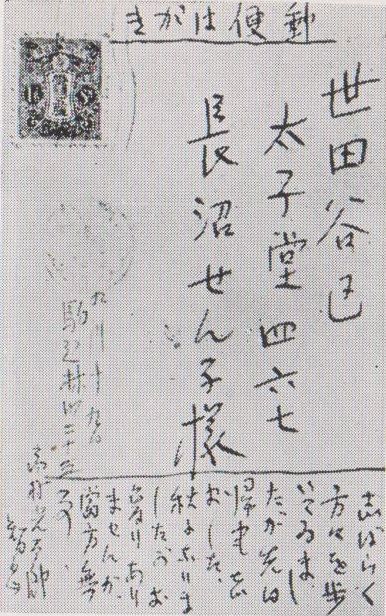 郵便はがき
世田谷区
太子堂四六七
長沼せん子様
九月十九日
駒込林町二十五
高村光太郎
智恵子
しばらく
方々を歩
いてゐまし
たが先日
帰宅し
ました、
秋になりま
したがお
変りあり
ませんか、
当方無